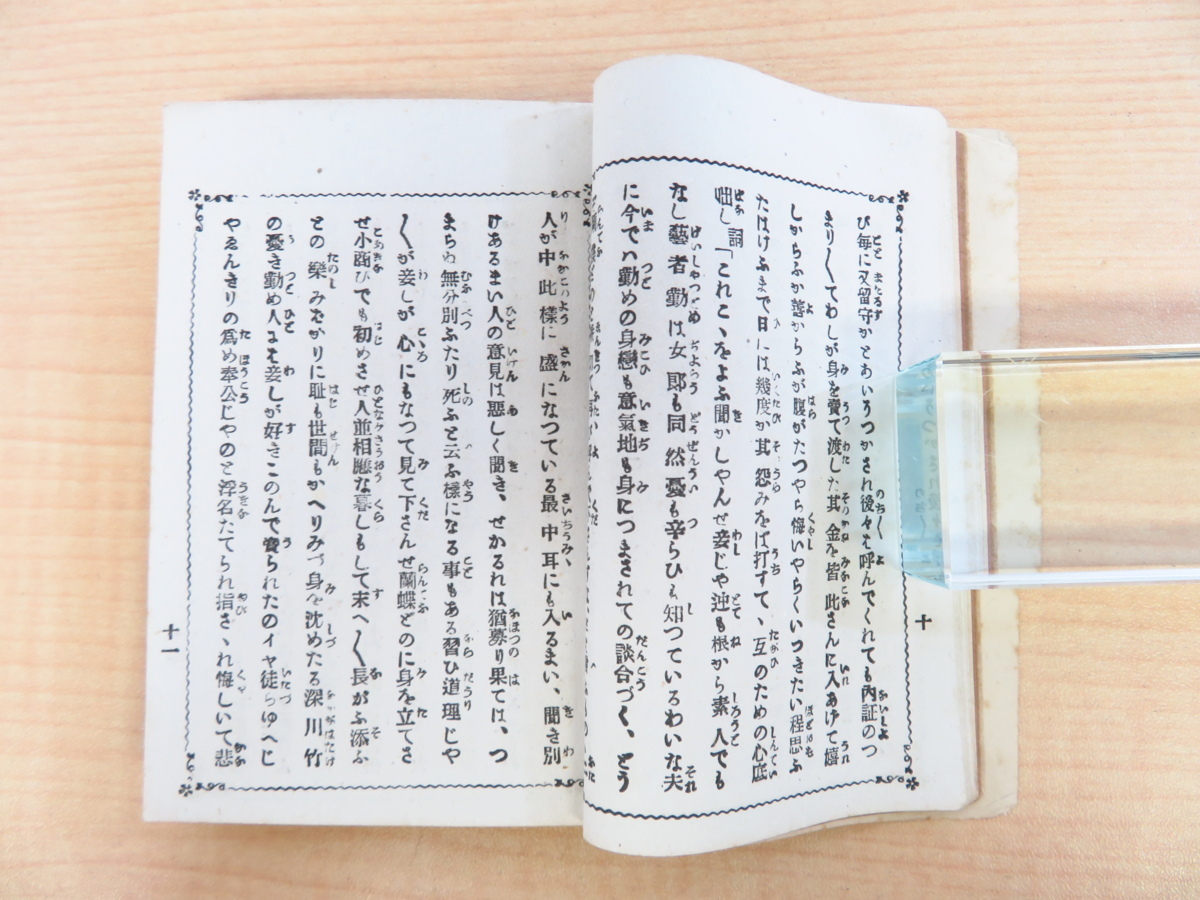 び毎に又留守かとあいろつかされ後々は呼んでくれても内証のつ
まり〳〵てわしが身を賣て渡した其金を皆此さんに入あげて嬉
しからふか善からふが腹がたつやら悔いやらくいつきたい程思ふ
たはけふまで日には幾度か其怨みをば打すて、互のための心底
咄し詞「これこゝをよふ聞かしやんせ妾じや迚も根から素人でも
なし藝者勤は女郎も同然憂も辛らひも知つているわいな夫
に今でハ勤めの身戀も意氣地も身につまされての談合づく、どう
人が中此樣に盛になつている最中耳にも入るまい、聞き別
けあるまい人の意見は惡しく聞き、せかるれは猶募り果ては、つ
まらぬ無分別ふたり死ふと云ふ樣になる事もある習ひ道理じや
〳〵が妾しが心にもなつて見て下さんせ蘭蝶どのに身を立てさ
せ小商ひでも初めさせ人並相應な暮しもして末へ〳〵長がふ添ふ
との樂みばかりに耻も世間もかへりみづ身を沈めたる深川竹
の憂き勤め人はも妾しが好きこのんで賣られたのイヤ徒らゆへじ
やゑんきりの爲め奉公じやのと浮名たてられ指さゝれ悔しいて悲
十
十一